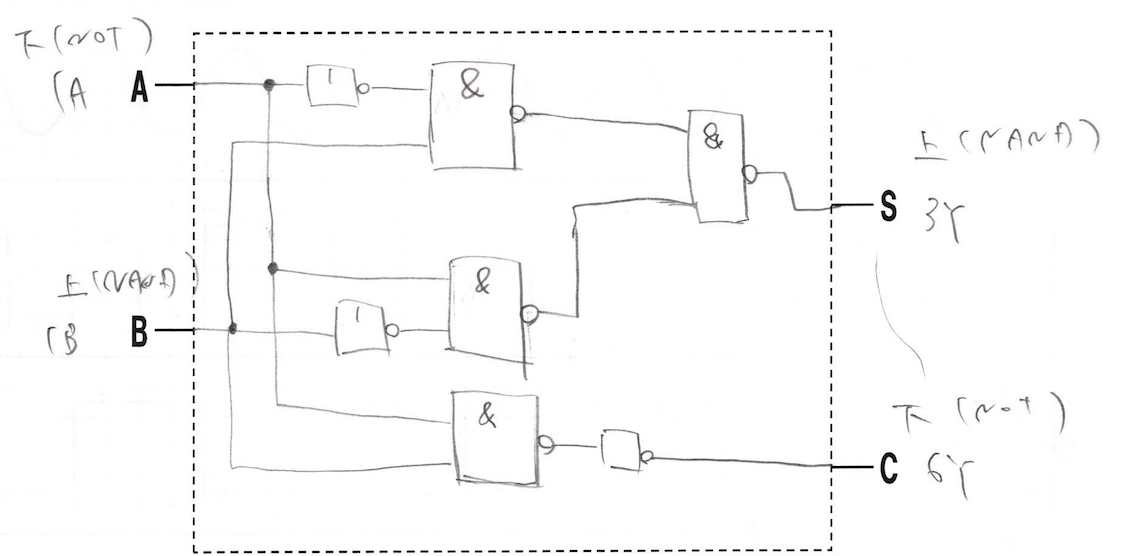 下(NOT)
1A A
1
&
&
上(NAND)
S 3Y
上(NAND)
1B B
&
1
&
下(NOT)
C 6Y